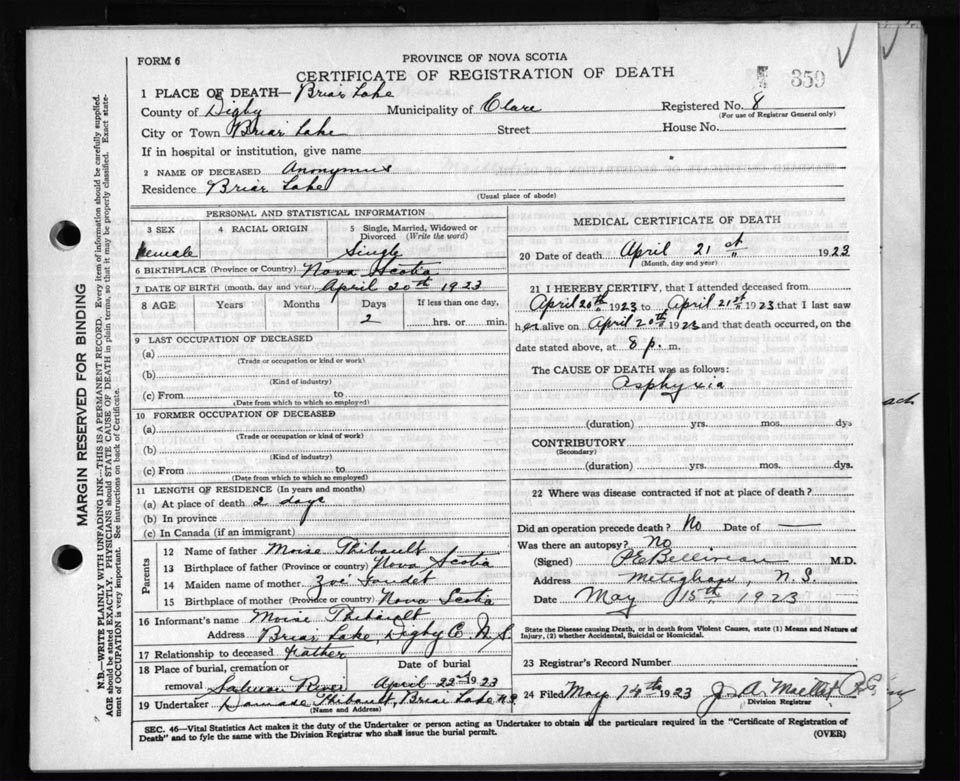 FORM 6
PROVINCE OF NOVA SCOTIA
CERTIFICATE OF REGISTRATION OF DEATH
359
1 PLACE OF DEATH—Briar Lake
County of Digby Municipality of Clare Registered No. 8
(For use of Registrar General only)
City or Town Briar Lake Street House No.
If in hospital or institution, give name
2 NAME OF DECEASED Anonymus
Residence Briar Lake
(Usual place of abode)
PERSONAL AND STATISTICAL INFORMATION
3 SEX 4 RACIAL ORIGIN 5 Single, Married, Widowed or Divorced (Write the word)
Female Single
6 BIRTHPLACE (Province or Country) Nova Scotia
7 DATE OF BIRTH (month, day and year) April 20th 1923
8 AGE Years Months Days If less than one day,
2 hrs. or min.
9 LAST OCCUPATION OF DECEASED
(a)
(Trade or occupation or kind or work)
(b)
(Kind of industry)
(c) From to
(Date from which to which so employed)
10 FORMER OCCUPATION OF DECEASED
(a)
(Trade or occupation or kind of work)
(b)
(Kind of industry)
(c) From to
(Date from which to which so employed)
11 LENGTH OF RESIDENCE (In years and months)
(a) At place of death 2 days
(b) In province
(c) In Canada (if an immigrant)
Parents
12 Name of father Moise Thibault
13 Birthplace of father (Province or country) Nova Scotia
14 Maiden name of mother Zoé
15 Birthplace of mother (Province or country) Nova Scotia
16 Informant's name Moise Thibault
Address Briar Lake, Digby Co N.S.
17 Relationship to deceased Father
18 Place of burial, cremation or removal Date of burial
Salmon River April 22nd 1923
19 Undertaker Thibault, Briar Lake N.S.
(Name and Address)
MEDICAL CERTIFICATE OF DEATH
20 Date of death April 21st 1923
(Month, day and year)
21 I HEREBY CERTIFY, that I attended deceased from
April 20th 1923 to April 21st 1923 that I last saw
her alive on April 20th 1923 and that death occurred, on the
date stated above, at 8 p. m.
The CAUSE OF DEATH was as follows:
Asphyxia
(duration) yrs. mos. dys
CONTRIBUTORY
(Secondary)
(duration) yrs. mos. dys.
22 Where was disease contracted if not at place of death?
Did an operation precede death? No Date of —
Was there an autopsy? No
(Signed) M.D.
Address Meteghan, N.S.
Date May 15th 1923
State the Disease causing Death, or in Death from Violent Causes, state (1) Means and Nature of
Injury, (2) whether Accidental, Suicidal or Homicidal.
23 Registrar's Record Number
24 Filed May 14th 1923
Division Registrar
SEC. 46—Vital Statistics Act makes it the duty of the Undertaker or person acting as Undertaker to obtain all the particulars required in the "Certificate of Registration of
Death" and to fyle the same with the Division Registrar who shall issue the burial permit. (OVER)
MARGIN RESERVED FOR BINDING
N.B.—WRITE PLAINLY WITH UNFADING INK—THIS IS A PERMANENT RECORD. Every item of information should be carefully supplied.
AGE should be stated EXACTLY. PHYSICIANS should STATE CAUSE OF DEATH in plain terms, so that it may be properly classified. Exact state-
ment of OCCUPATION is very important. See instructions on back of Certificate.